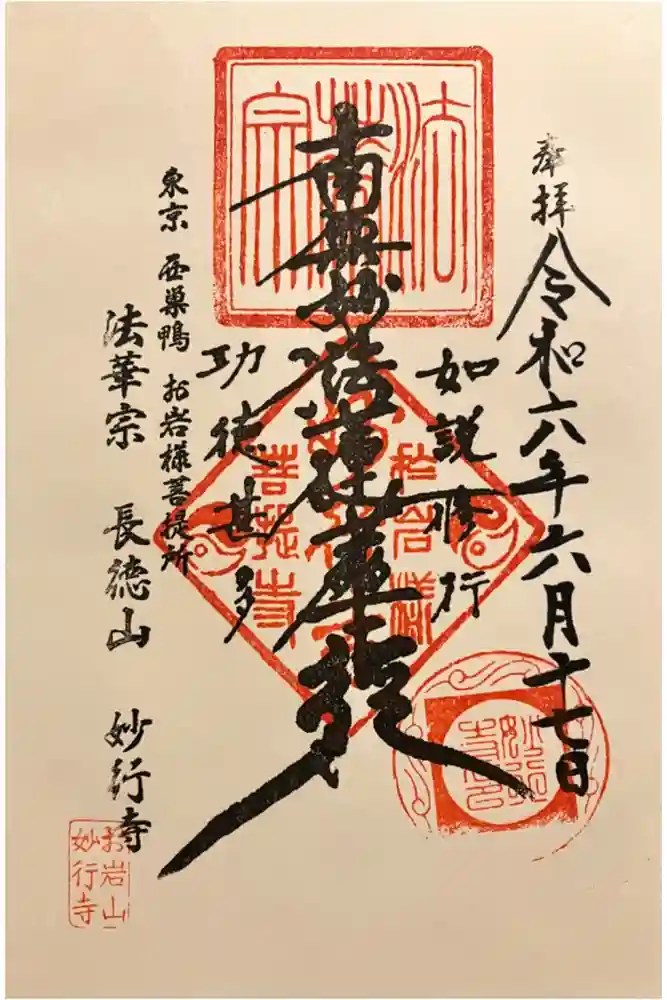 奉拝 令和六年六月十七日
如説修行
南無妙法蓮華経
功徳甚多
東京 西巣鴨 お岩様菩提所
法華宗 長徳山 妙行寺
法華宗
於岩様
菩提寺
お岩山
妙行寺